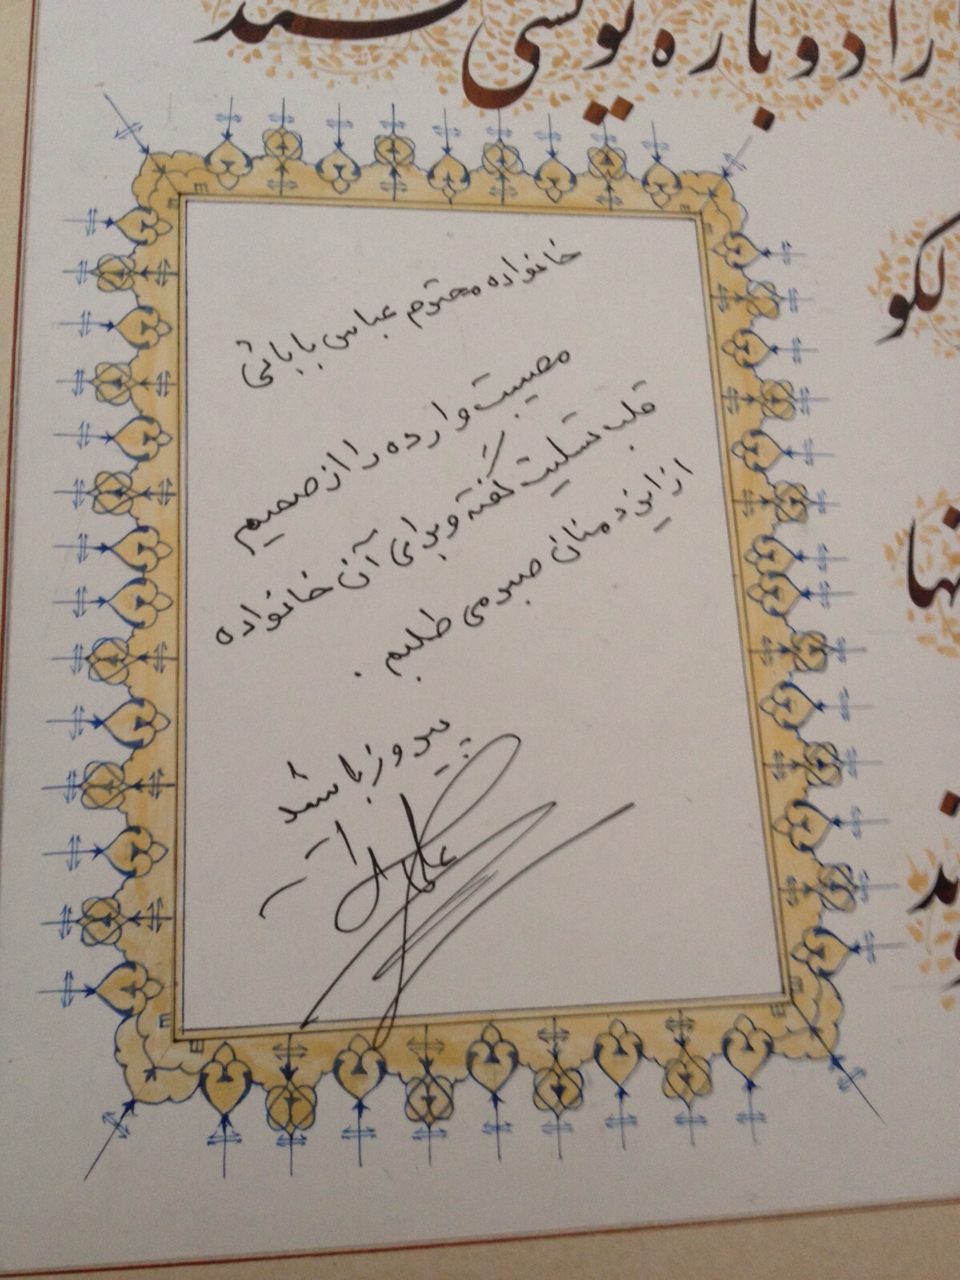 را دوباره
خانواده محترم عباس بابائی
مصیبت وارده را از صمیم
قلب تسلیت گفته و برای آن خانواده
از ایزد منان صبر می طلبم .
پیروز باشید